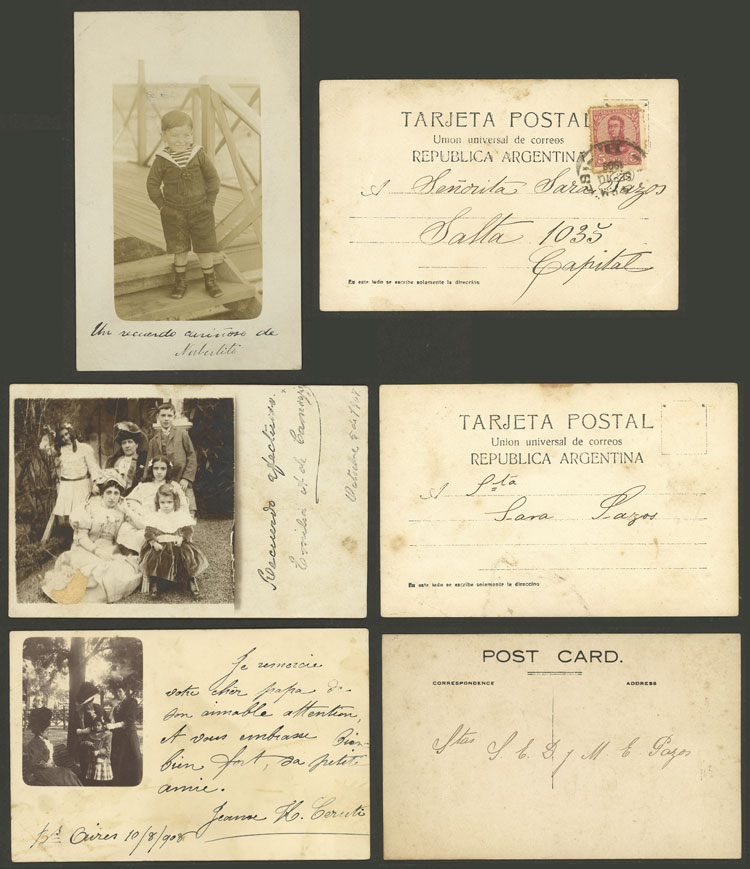 Un recuerdo cariñoso de
Norbertito
TARJETA POSTAL
Union universal de correos
REPUBLICA ARGENTINA
A Señorita Sara Pazos
Salta 1035
Capital
En este lado se escribe solamente la dirección
Recuerdo afectuoso.
Emilia A. de
Octubre 5 de 1908
TARJETA POSTAL
Union universal de correos
REPUBLICA ARGENTINA
A Sta
Sara Pazos
En este lado se escribe solamente la dirección
Je remercie
votre cher papa de
son aimable attention,
et vous embrasse bien
bien fort, sa petite
amie.
Jeanne H. Ceruti
Bs Aires 10/8/908
POST CARD.
CORRESPONDENCE
ADDRESS
Stas S. E. D. y M. E. Pazos